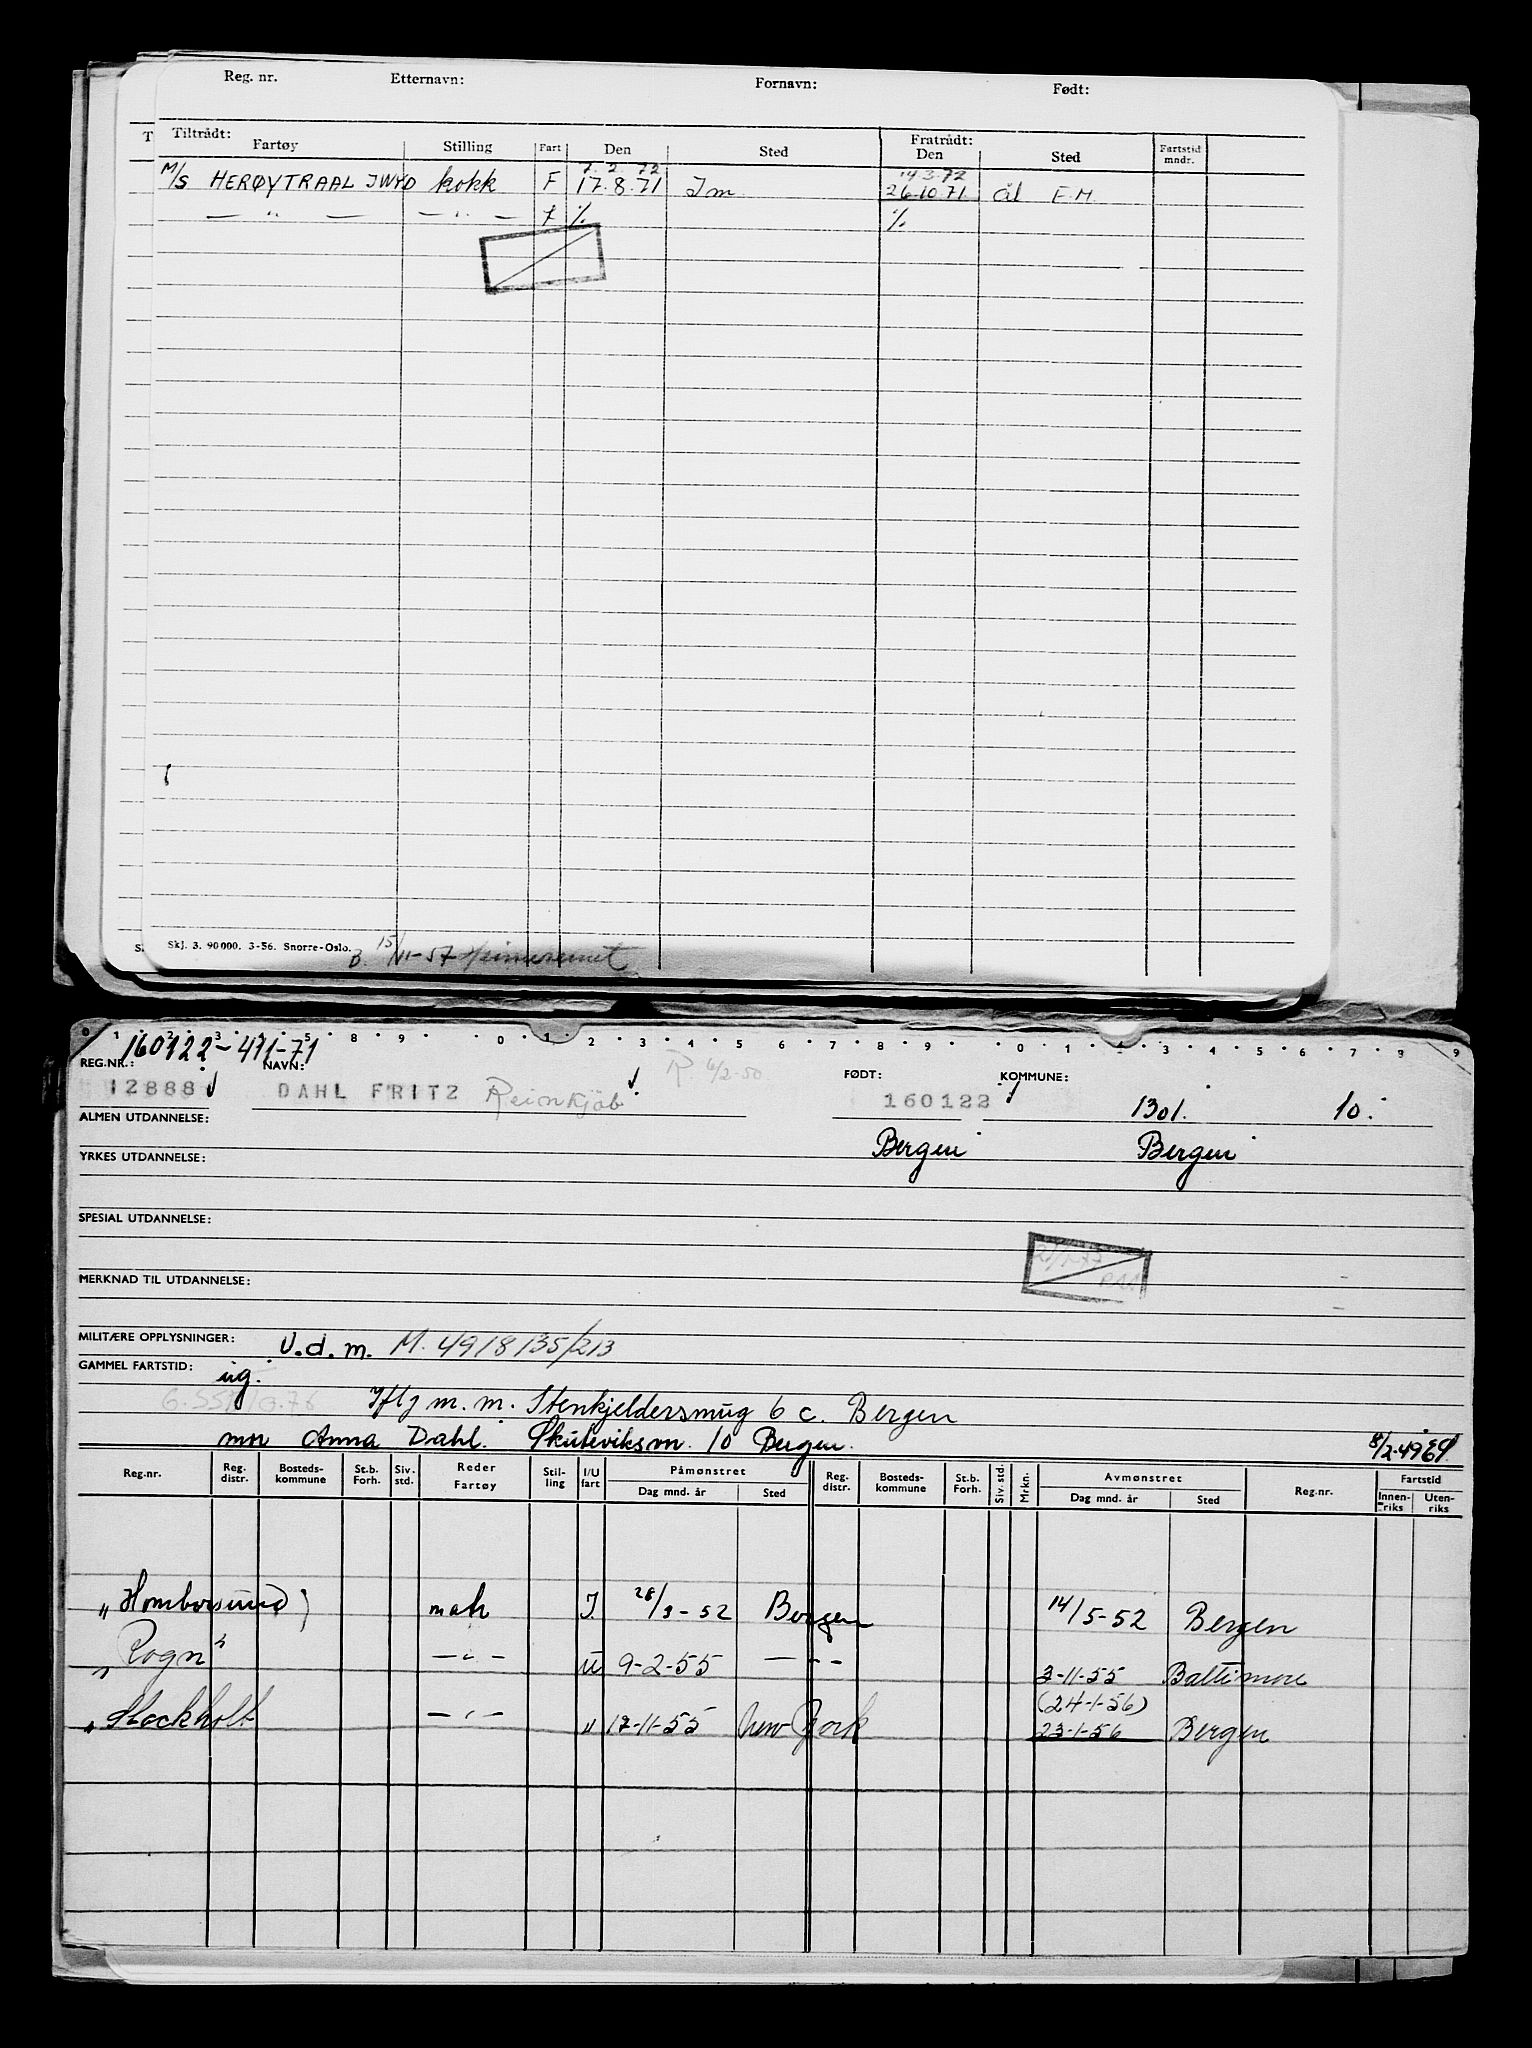 Reg. nr. Etternavn: Fornavn: Født:
Tiltrådt: Fratrådt:
Fartøy Stilling Fart Den Sted Den Sted Fartstid mndr.
7.2.72 14.3.72
M/S HERØYTRAAL JWYD kokk F 17.8.71 Im 26.10.71 Ål F.H.
— " — — " — f % %
Skj. 3. 90000. 3-56. Snorre-Oslo.
B. 15/11-57
160122-471-71
REG.NR.: NAVN: FØDT: KOMMUNE:
12888 DAHL FRITZ Reinkjøb R. 6/2-50 160122 1301. 10.
ALMEN UTDANNELSE:
Bergen Bergen
YRKES UTDANNELSE:
SPESIAL UTDANNELSE:
MERKNAD TIL UTDANNELSE:
MILITÆRE OPPLYSNINGER: U.d.m. M. 4918135/213
GAMMEL FARTSTID: ug.
Iflg m.m. Stenkjeldersmug 6 c. Bergen
mor Anna Dahl. Skuteviksvn. 10 Bergen. 8/2-49
Reg.nr. Reg. distr. Bosteds-kommune St.b. Forh. Siv. std. Reder Fartøy Stil-ling I/U fart Påmønstret Reg. distr. Bosteds-kommune St.b. Forh. Siv. std. Mrkn. Avmønstret Reg.nr. Fartstid
Dag mnd. år Sted Dag mnd. år Sted Innen-riks Uten-riks
" Homborsund) mak I. 28/3-52 Bergen 14/5-52 Bergen
" Rogn" — " — U 9-2-55 — " — 3-11-55 Baltimore
(24-1-56)
" Stockholt — " — " 17-11-55 New York 23-1-56 Bergen